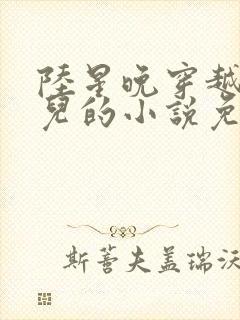 陸星晚穿越
兒的小說免
斯蒼夫盖瑞沃